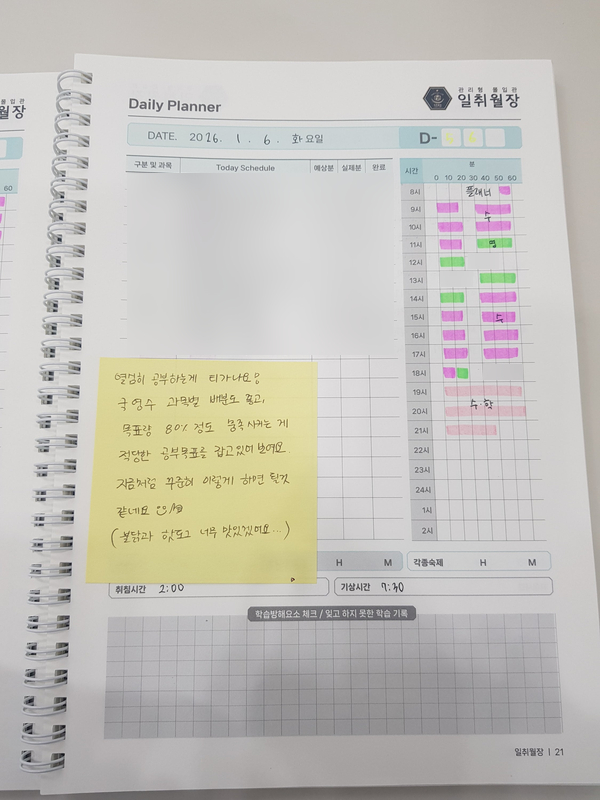 물입관
월장
60
Daily Planner
관리형 몰입관
일취월장
DATE. 2026. 1. 6. 화요일
D-
구분 및 과목 Today Schedule 예상분 실제분 완료
시간 분
0 10 20 30 40 50 60
8시 플래너
9시 수
10시
11시 영
12시
13시
14시
15시 수
16시
17시
18시
19시
20시 수학
21시
22시
23시
24시
1시
2시
열심히 공부하는게 티가나요!
국영수 과목별 배분도 좋고,
목표량 80% 정도 충족시키는 게
적당한 공부목표를 잡고있어 보여요
지금처럼 꾸준히 이렇게 하면 될것
같네요
(불닭과 핫도그 너무 맛있겠어요...)
H M
각종숙제 H M
취침시간 2:00
기상시간 7:30
학습방해요소 체크 / 잊고 하지 못한 학습 기록
일취월장 | 21